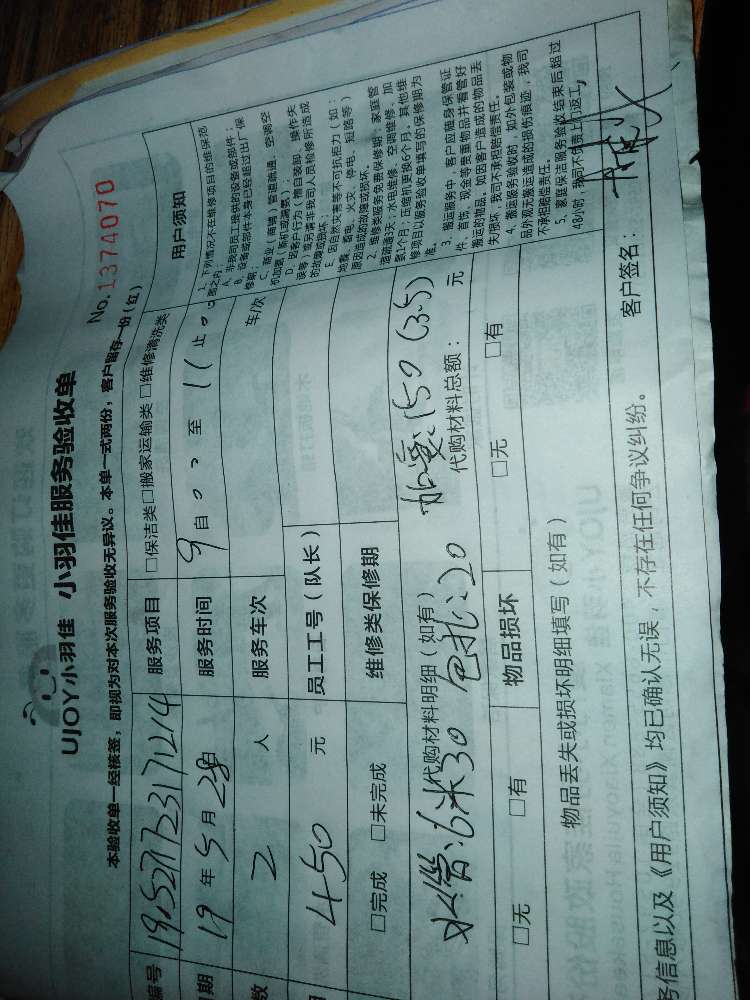 UJOY小羽佳 小羽佳服务验收单
No.1374070
本验收单一经核签，即视为对本次服务验收无异议。本单一式两份，客户留存一份（红）
编号 服务项目 □保洁类□搬家运输类□维修清洗类
19 年 5 月 28 日 服务时间 9 自 至 11 止
2 人 服务车次 车/次
450 元 员工工号（队长）
□完成 □未完成 维修类保修期
用户须知
1、下列情况不在维修项目的维保范
围之内：
A、非我司员工提供的设备或部件；
B、设备或部件本身已经超过出厂保
修期；
C、商业（商铺，管道疏通、空调空
机加氟，新机或漏氟）；
D、因客户行为（擅自装卸、操作失
误等）或另请非我司人员检修所造成
的故障或损坏。
E、因自然灾害等不可抗拒力（如：
地震、雷电、火灾、停电、短路等）
原因造成的故障或损坏。
2、维修类服务免费保修期：家庭管
道疏通3天；水电维修、空调维修、加
氟1个月；压缩机更换6个月，其他维
修项目以服务验收单填写的保修期为
准。
3、搬运服务中，客户应随身保管证
件、首饰、现金等贵重物品并看管好
搬运的物品，如因客户造成的物品丢
失/损坏，我司不承担赔偿责任。
4、搬运服务验收时，如外包装或物
品外观无搬运造成的损伤痕迹，我司
不承担赔偿责任。
5、家庭保洁服务验收结束后超过
48小时，我司不负责上门返工。
代购材料明细（如有）
水管:6米30 包扎:20 加氟:150（3.5）
代购材料总额： 元
□无 □有 物品损坏 □无 □有
物品丢失或损坏明细填写（如有）
务信息以及《用户须知》均已确认无误，不存在任何争议纠纷。 客户签名：